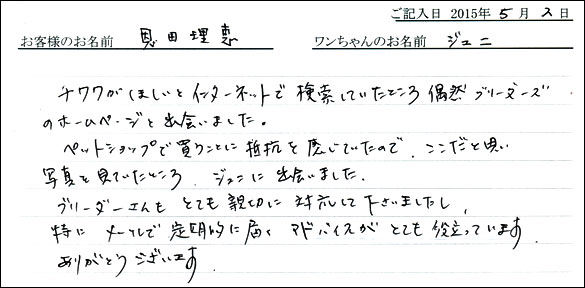 ご記入日 2015年 5月 2日
お客様のお名前 恩田理恵 ワンちゃんのお名前 ジュニ
チワワがほしいとインターネットで検索していたところ偶然ブリーダーズ
のホームページと出会いました。
ペットショップで買うことに抵抗を感じていたので、ここだと思い
写真を見ていたところ、ジュニに出会いました。
ブリーダーさんもとても親切に対応して下さいましたし、
特にメールで定期的に届くアドバイスがとても役立っています。
ありがとうございます。